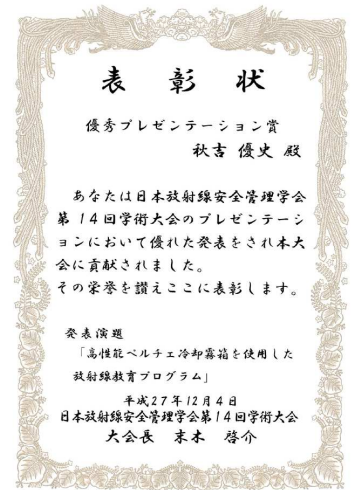 表彰状
優秀プレゼンテーション賞
秋吉 優史 殿
あなたは日本放射線安全管理学会
第14回学術大会のプレゼンテーシ
ョンにおいて優れた発表をされ本大
会に貢献されました。
その栄誉を讃えここに表彰します。
発表演題
「高性能ペルチェ冷却霧箱を使用した
放射線教育プログラム」
平成27年12月4日
日本放射線安全管理学会第14回学術大会
大会長 末木 啓介